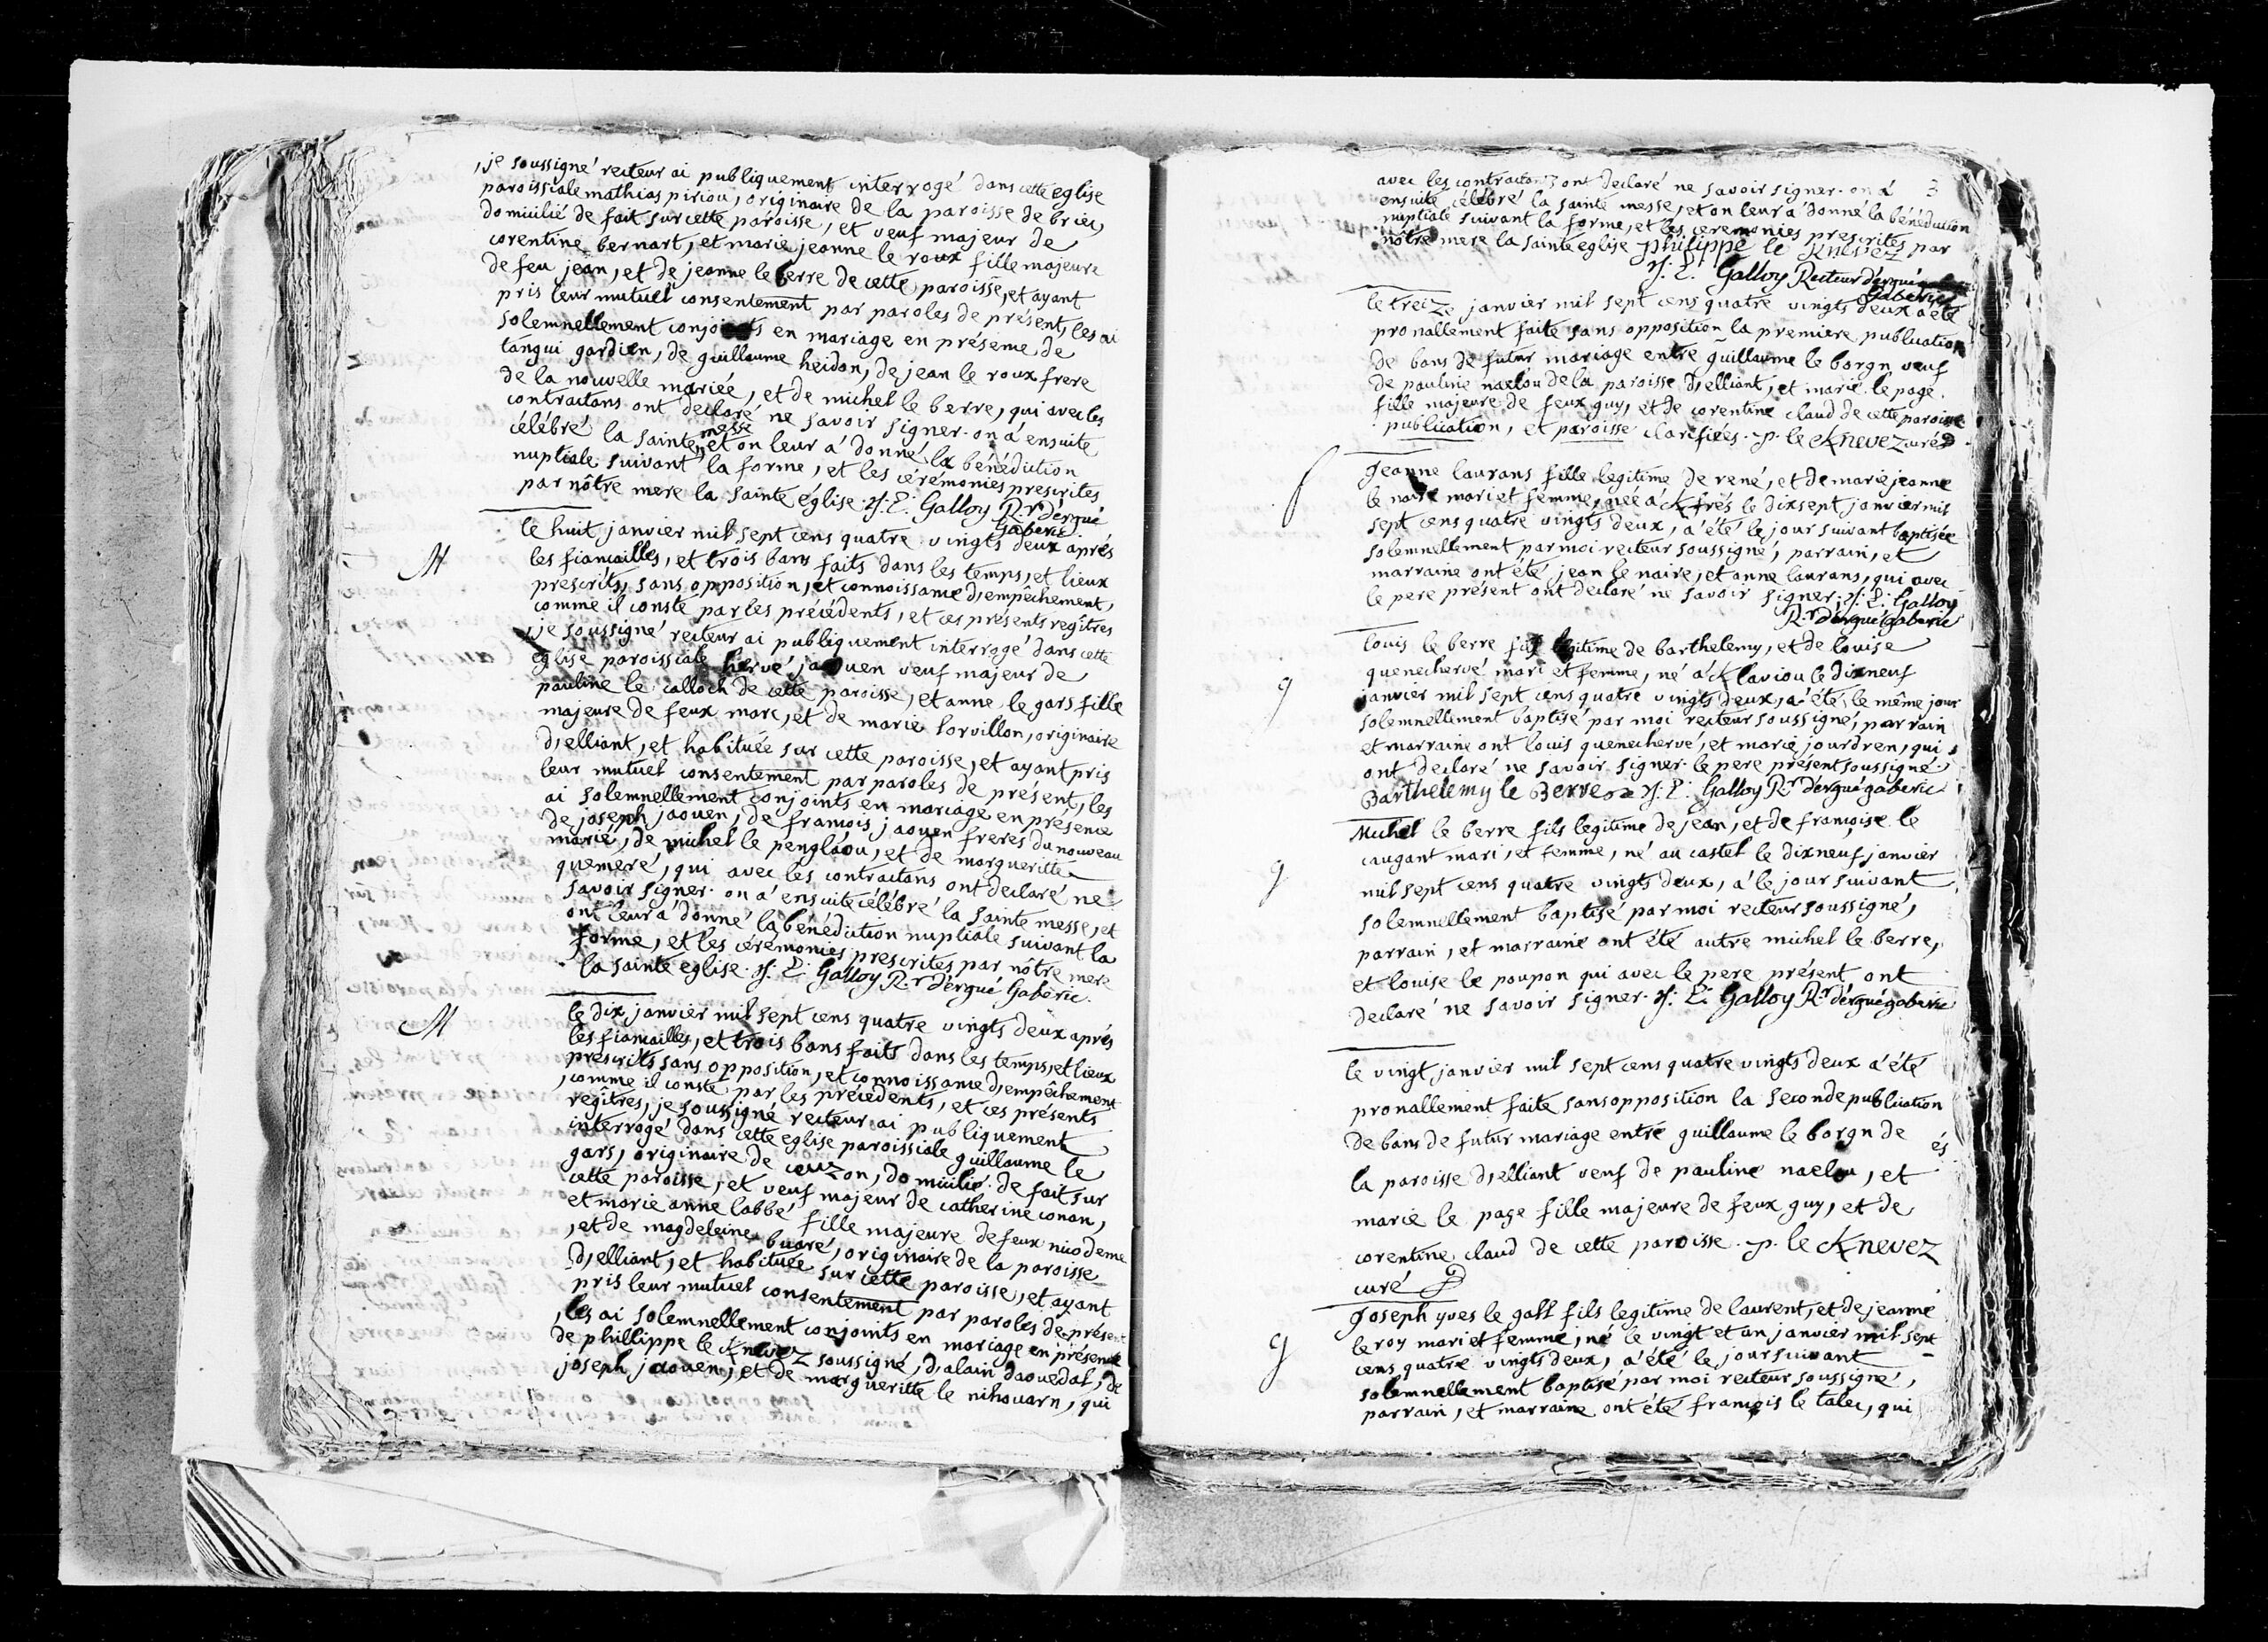 , je soussigné recteur ai publiquement interrogé dans cette eglise
paroissiale mathias piriou, originaire de la paroisse de briec,
domicilié de fait sur cette paroisse, et veuf majeur de
corentine bernart, et marie jeanne le roux fille majeure
de feu jean, et de jeanne le berre de cette paroisse, et ayant
pris leur mutuel consentement par paroles de présent, les ai
solemnellement conjoints en mariage en présence de
tangui gardien, de guillaume heidon, de jean le roux frere
de la nouvelle mariée, et de michel le berre, qui avec les
contractans ont declaré ne savoir signer. on a' ensuite
célébré la sainte messe, et on leur a' donné la bénédiction
nuptiale suivant la forme, et les cérémonies prescrites
par nôtre mere la sainte église. y. E. Galloy R.r d'ergué
Gaberic
M
le huit janvier mil sept cens quatre vingts deux aprés
les fiancailles, et trois bans faits dans les temps, et lieux
prescrits, sans opposition, et connoissance d'empêchement,
comme il conste par les précédents, et ces présents regîtres
, je soussigné recteur ai publiquement interrogé dans cette
eglise paroissiale hervé jaouen veuf majeur de
pauline le calloch de cette paroisse, et anne le gars fille
majeure de feux marc, et de marie lorvillon, originaire
d'elliant, et habituée sur cette paroisse, et ayant pris
leur mutuel consentement par paroles de présent, les
ai solemnellement conjoints en mariage en présence
de joseph jaouen, de francois jaouen freres du nouveau
marié, de michel le penglaou, et de margueritte
quemeré, qui avec les contractans ont declaré ne
savoir signer. on a' ensuite célébré la sainte messe, et
ont leur a' donné la bénédiction nuptiale suivant la
forme, et les cérémonies prescrites par nôtre mere
la sainte eglise. y. E. Galloy R.r d'ergué Gaberic.
M
le dix janvier mil sept cens quatre vingts deux aprés
les fiancailles, et trois bans faits dans les temps, et lieux
prescrits sans opposition, et connoissance d'empêchement
, comme il conste par les précédents, et ces présents
regîtres, je soussigné recteur ai publiquement
interrogé dans cette eglise paroissiale guillaume le
gars, originaire de cuzon, domicilié de fait sur
cette paroisse, et veuf majeur de catherine conan,
et marie anne labbé fille majeure de feux nicodeme
, et de magdeleine buaré, originaire de la paroisse
d'elliant, et habituée sur cette paroisse, et ayant
pris leur mutuel consentement par paroles de présent
, les ai solemnellement conjoints en mariage en présence
de phillippe le Knevez soussigné, d'alain daouedal, de
joseph jaouen, et de margueritte le nihouarn, qui
3
avec les contractans ont declaré ne savoir signer. on a'
ensuite célébré la sainte messe, et on leur a' donné la bénédiction
nuptiale suivant la forme, et les ceremonies prescrites par
nôtre mere la sainte eglise philippe le Knevez
y. E. Galloy Recteur d'ergué
Gaberic
le treize janvier mil sept cens quatre vingts deux a' été
pronallement faite sans opposition la premiere publication
de bans de futur mariage entre guillaume le borgn veuf
de pauline naelou de la paroisse d'elliant, et marie le page
fille majeure de feux guy, et de corentine claud de cette paroisse
publication, et paroisse clarifiées. p. le Knevez curé
f
Jeanne laurans fille legitime de rené, et de marie jeanne
le naire mari et femme, née a' Kfrés le dixsept janvier mil
sept cens quatre vingts deux, a' été le jour suivant baptisée
solemnellement par moi recteur soussigné, parrain, et
marraine ont été jean le naire, et anne laurans, qui avec
le pere présent ont declaré ne savoir signer. y. E. Galloy
R.r d'ergué gaberic
g
louis le berre fils legitime de barthelemy, et de louise
quenechervé mari et femme, né a' Klaviou le dixneuf
janvier mil sept cens quatre vingts deux, a' été le même jour
solemnellement baptisé par moi recteur soussigné, parrain
et marraine ont louis quenechervé, et marie jourdren, qui
ont declaré ne savoir signer. le pere présent soussigné
Barthelemy le Berre y. E. Galloy R.r d'ergué gaberic
g
Michel le berre fils legitime de jean, et de françoise le
caugant mari, et femme, né au castel le dixneuf janvier
mil sept cens quatre vingts deux, a' le jour suivant
solemnellement baptisé par moi recteur soussigné,
parrain, et marraine ont été autre michel le berre,
et louise le poupon qui avec le pere présent ont
declaré ne savoir signer. y. E. Galloy R.r d'ergué gaberic
le vingt janvier mil sept cens quatre vingts deux a' été
pronallement faite sans opposition la seconde publication
de bans de futur mariage entre guillaume le borgn de
la paroisse d'elliant veuf de pauline naelou, et
marie le page fille majeure de feux guy, et de
corentine claud de cette paroisse. p. le Knevez
curé
g
Joseph yves le gall fils legitime de laurent, et de jeanne
le roy mari et femme, né le vingt et un janvier mil sept
cens quatre vingts deux, a' été le jour suivant
solemnellement baptisé par moi recteur soussigné,
parrain, et marraine ont été françois le talec, qui